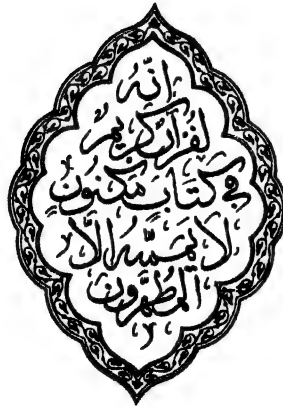 إنّه
لقرآن كريم
في كتاب مكنون
لا يمسّه إلّا
المطهّرون